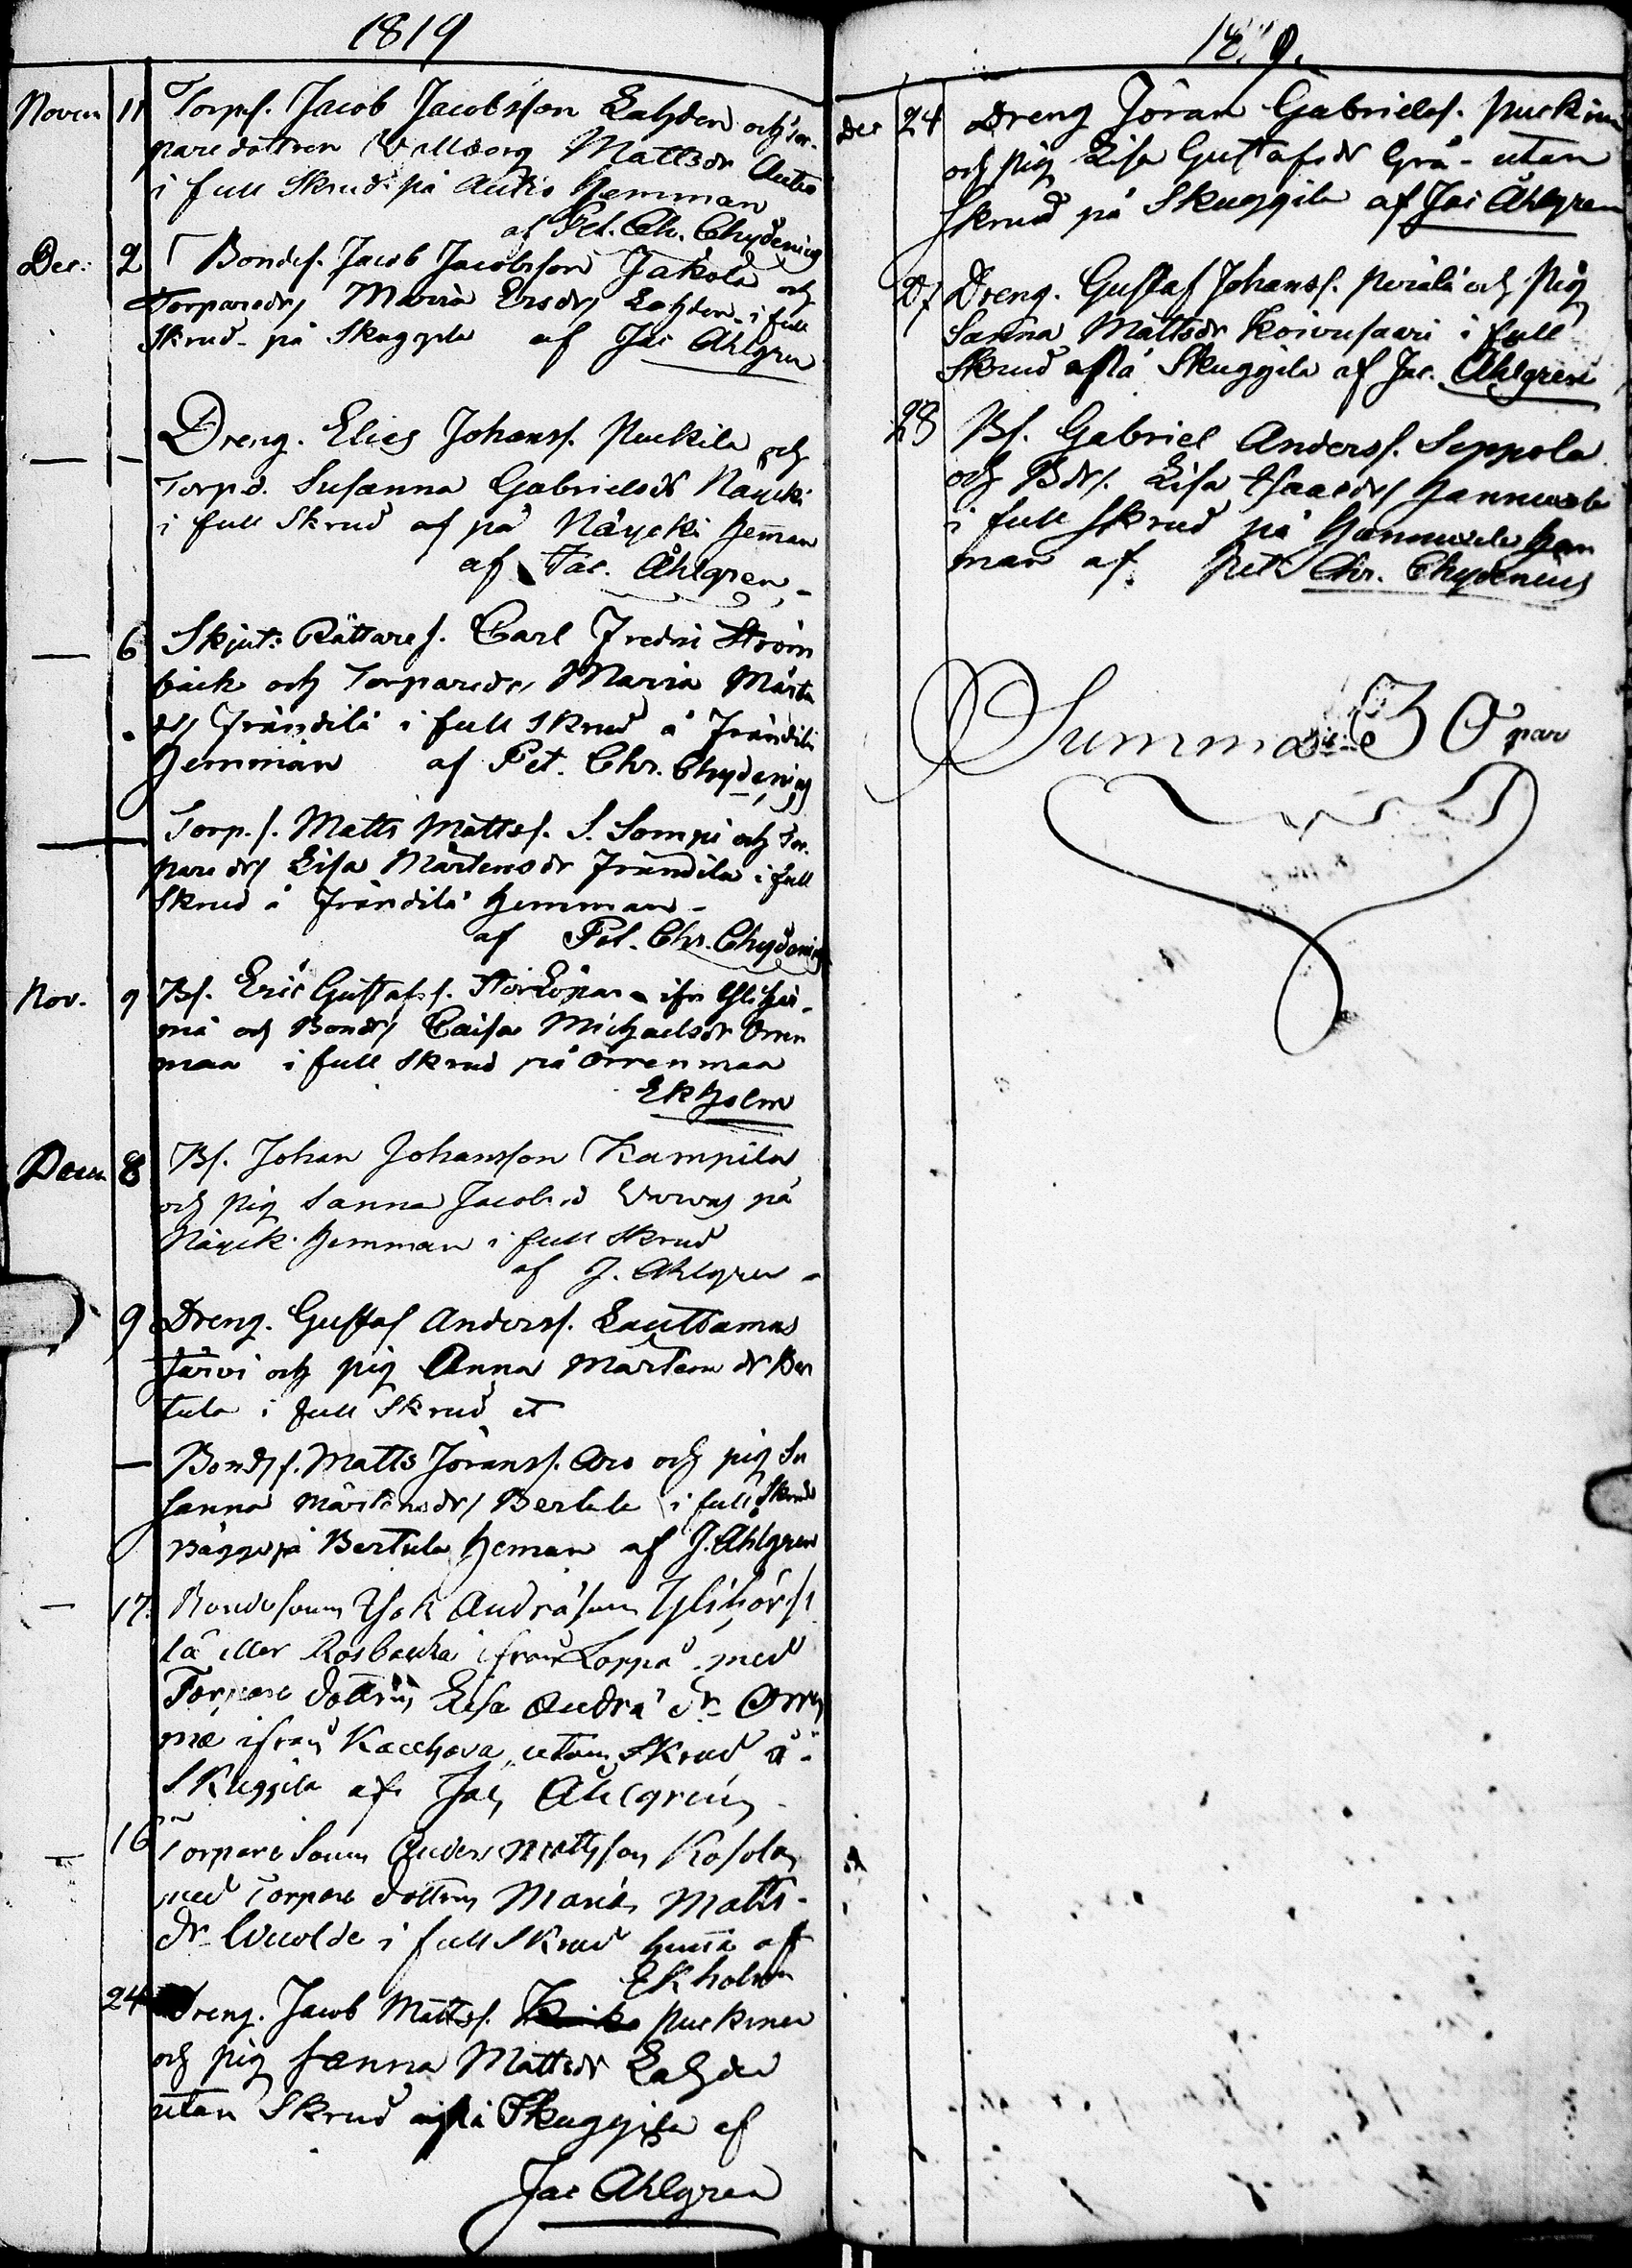 1819
Novem 11 Torps. Jacob Jacobsson Lahden och tor-
pare dottren Wallborg Mattsdr Autio
i full Skrud på Autio hemman
af Pet. Chr. Chydenius
Dec: 2 Bondes. Jacob Jacobsson Jakola och
Torparedr Maria Ersdr Lahden i full
Skrud på Skuggila af Jac Ahlgren
— — Dreng. Elies Johanss. Puckila och
Torp.d. Susanna Gabrielsdr Näycki
i full Skrud af på Näycki heman
af Jac. Åhlgren
— 6 Skjuts Rättares. Carl Fredric Ström
bäck och Torparedr Maria Mårtens
dr Frändilä i full Skrud å Frändilä
Hemman af Pet. Chr. Chydenius
— Torp.s. Matts Mattss. S. Sompi och Tor-
pare dr Lisa Mårtensdr Frändila i full
Skrud å Frändilä hemman
af Pet. Chr. Chydenius
Nov. 9 Bs. Eric Gustafss. ifrn Ylihär-
mä och Bondr Caisa Michaelsdr Orren
maa i full Skrud på Orrenmaa
Ekholm
Decem 8 Bs. Johan Johansson Kampila
och pig Sanna Jacobsd på
Näyck. hemman i full Skrud
af J. Ahlgren
9 Dreng. Gustaf Anderss. Lauttamus
järvi och pig Anna Mårtens dr Ber
tula i full Skrud et
— Bondes. Matts Jöranss. Aro och pig Su
sanna Mårtensdr Bertula i full Skrud
bägge på Bertula heman af J. Ahlgren
— 17. Bondesonen Isak Andräson Ylihörs
lä eller Rosbacka ifrån Lappo med
Torpare dottren Lisa Andrä dr Orren
ma ifrån Kauhava, utan Skrud å
Skuggila af Jac Ahlgren
— 16 Torpare Sonen Anders Mattsson Kosola
med Torpare dottren Maria Matts-
dr Wuolde i full Skrud hema af
Ekholm
24 Dreng. Jacob Mattss. Puckinen
och pig Sanna Mattsdr Lahden
utan Skrud Skuggila af
Jac Ahlgren
1819.
Dec 24 Dreng Jöran Gabrielss. Puckinen
och pig Lisa Gustafsdr Grå - utan
Skrud på Skuggila af Jac Åhlgren
27 Dreng. Gustaf Johanss. Perälä och Pig
Sanna Mattsdr Koivusaari i full
Skrud Skuggila af Jac. Åhlgren
28 Bs. Gabriel Anderss. Seppola
och Bdr. Lisa Isaacsdr Hannuala
i full Skrud på Hannuala Hem
man af Pet Chr. Chydenius
Summa 30 par